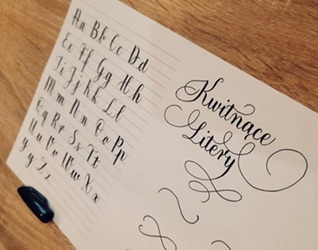 Aa Bb Cc Dd
Ee Ff Gg Hh
Ii Jj Kk Ll
Mm Nn Oo Pp
Qq Rr Ss Tt
Uu Vv Ww Xx
Yy Zz
Kwitnące
Litery